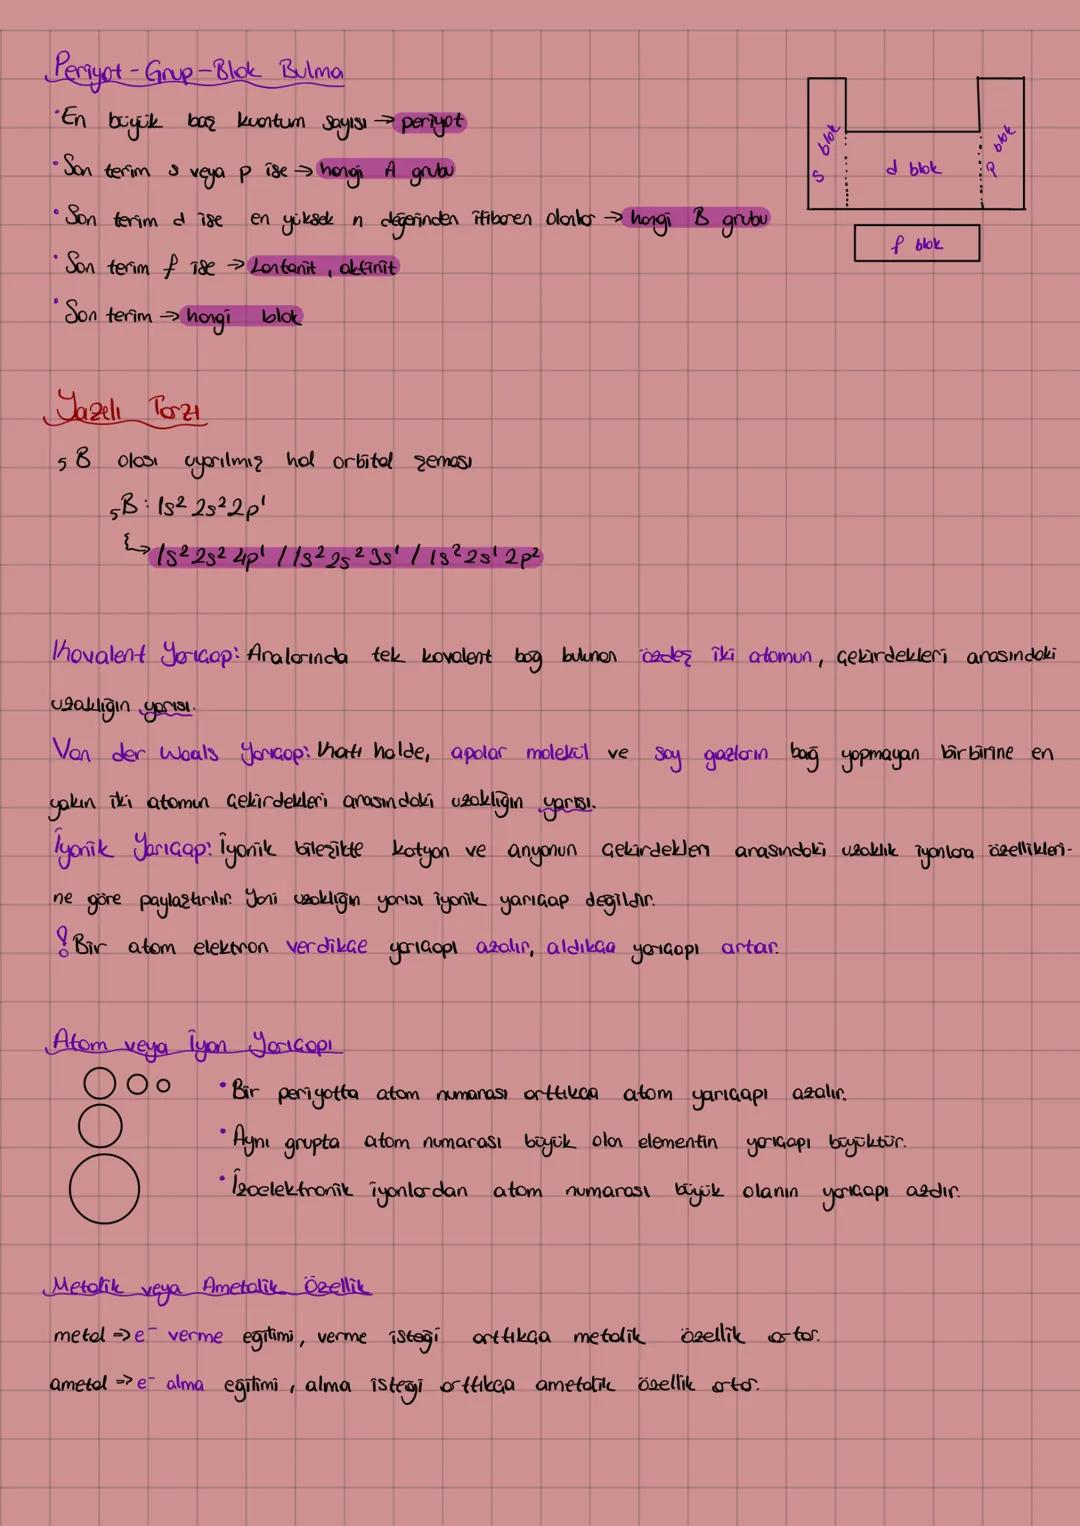 Periyot-Grup-Blok Bulma
•En büyük baş kuantum sayısı → periyot
•Son terim s veya p ise → hangi A grubu
•Son terim d ise en yüksek n değerinden itibaren olanlar → hangi B grubu
•Son terim f ise → Lantanit, aktinit
•Son terim → hangi blok
s blok
d blok
p blok
f blok
Yazılı Tarzı
₅B olası uyarılmış hal orbital şeması
₅B: 1s² 2s² 2p¹
↳ 1s² 2s² 4p¹ / 1s² 2s² 3s¹ / 1s² 2s¹ 2p²
Kovalent Yarıçap: Aralarında tek kovalent bağ bulunan özdeş iki atomun, çekirdekleri arasındaki
uzaklığın yarısı.
Van der Waals Yarıçap: Katı halde, apolar molekül ve soy gazların bağ yapmayan birbirine en
yakın iki atomun çekirdekleri arasındaki uzaklığın yarısı.
İyonik Yarıçap: İyonik bileşikte katyon ve anyonun çekirdekleri arasındaki uzaklık iyonlara özellikleri-
ne göre paylaştırılır. Yani uzaklığın yarısı iyonik yarıçap değildir.
! Bir atom elektron verdikçe yarıçapı azalır, aldıkça yarıçapı artar.
Atom veya İyon Yarıçapı
•Bir periyotta atom numarası arttıkça atom yarıçapı azalır.
•Aynı grupta atom numarası büyük olan elementin yarıçapı büyüktür.
•İzoelektronik iyonlardan atom numarası büyük olanın yarıçapı azdır.
Metalik veya Ametalik Özellik
metal ⇒ e⁻ verme eğilimi, verme isteği arttıkça metalik özellik artar.
ametal ⇒ e⁻ alma eğilimi, alma isteği arttıkça ametalik özellik artar.